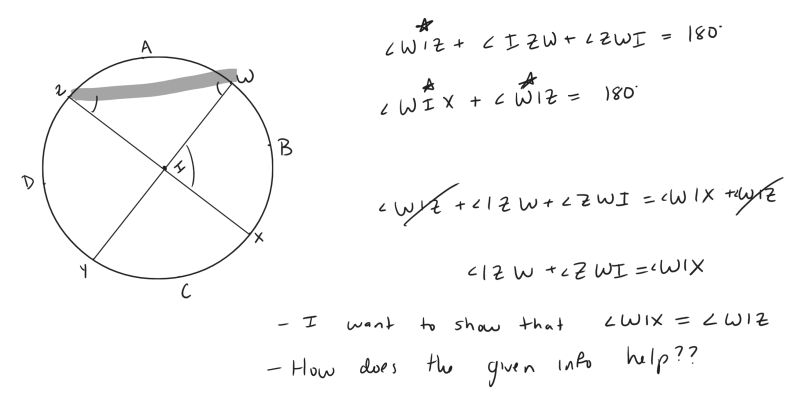 A
Z
W
I
B
D
X
Y
C
∠WIZ + ∠IZW + ∠ZWI = 180°
∠WIX + ∠WIZ = 180°
∠WIZ + ∠IZW + ∠ZWI = ∠WIX + ∠WIZ
∠IZW + ∠ZWI = ∠WIX
- I want to show that ∠WIX = ∠WIZ
- How does the given info help??